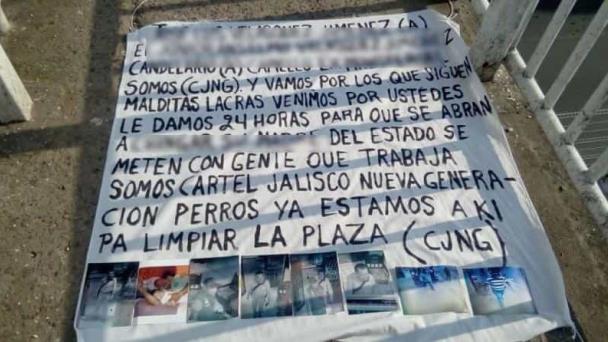 JIMENEZ (A)
E
CANDELARIO (A) CAMELLO
SOMOS (CJNG). Y VAMOS POR LOS QUE SIGUEN
MALDITAS LACRAS VENIMOS POR USTEDES
LE DAMOS 24 HORAS PARA QUE SE ABRAN
A DEL ESTADO SE
METEN CON GENTE QUE TRABAJA
SOMOS CARTEL JALISCO NUEVA GENERA-
CION PERROS YA ESTAMOS AKI
PA LIMPIAR LA PLAZA (CJNG)